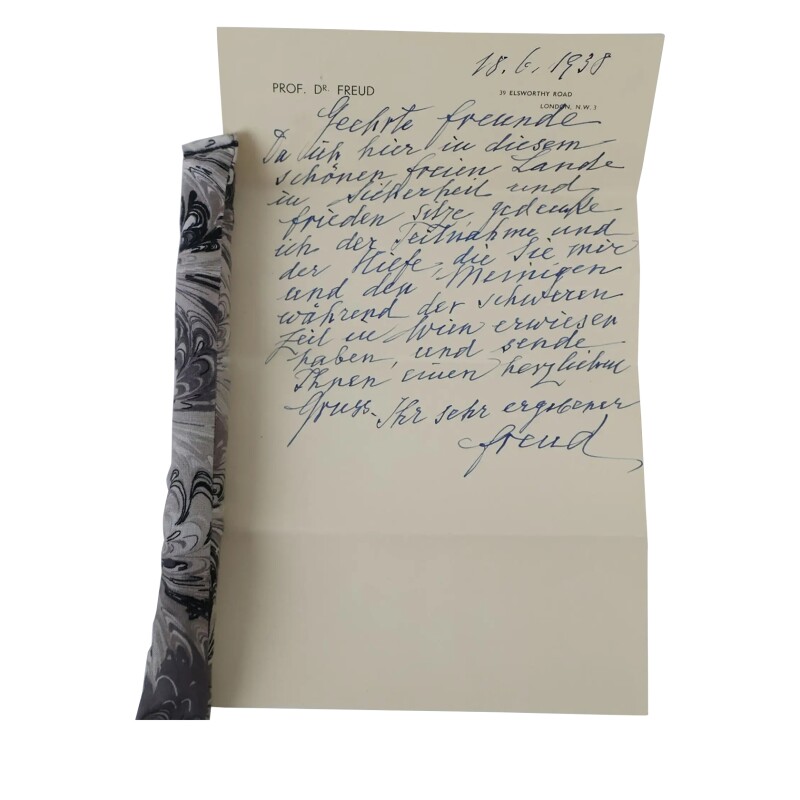 18. 6. 1938
PROF. DR. FREUD
39 ELSWORTHY ROAD
LONDON, N.W.3
Geehrte Freunde
Da ich hier in diesem
schönen freien Lande
in Sicherheit und
Frieden sitze, gedenke
ich der Teilnahme und
der Hilfe, die Sie mir
und den Meinigen
während der schweren
Zeit in Wien erwiesen
haben, und sende
Ihnen einen herzlichen
Gruss. Ihr sehr ergebener
Freud